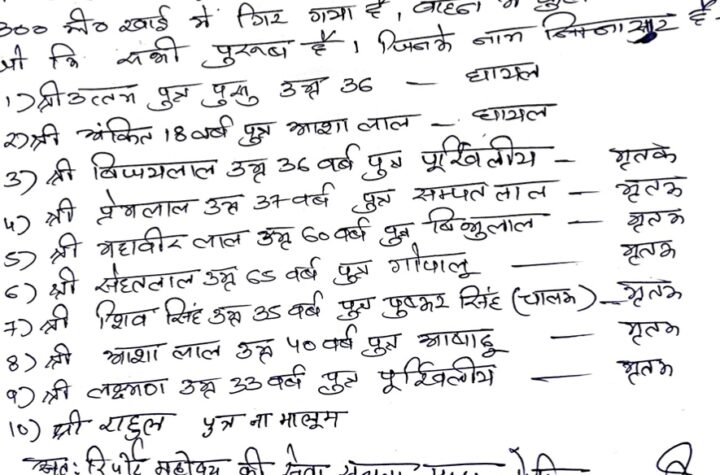 300 मी० खाई में गिर गया है, वाहन में
जो कि सभी पुरुष है। जिनके नाम निम्नानुसार है-
1) श्री उत्तम पुत्र पुसु उम्र 36 — घायल
2) श्री अंकित 18 वर्ष पुत्र आशा लाल — घायल
3) श्री विजयलाल उम्र 36 वर्ष पुत्र — मृतक
4) श्री प्रेमलाल उम्र 37 वर्ष पुत्र सम्पत लाल — मृतक
5) श्री लाल उम्र 60 वर्ष पुत्र — मृतक
6) श्री उम्र 65 वर्ष पुत्र गोपालू — मृतक
7) श्री शिव सिंह उम्र 35 वर्ष पुत्र पुष्कर सिंह (चालक) — मृतक
8) श्री आशा लाल उम्र 40 वर्ष पुत्र आषाढू — मृतक
9) श्री लक्ष्मण उम्र 33 वर्ष पुत्र — मृतक
10) श्री राहुल पुत्र ना मालूम
अतः रिपोर्ट महोदय की सेवा